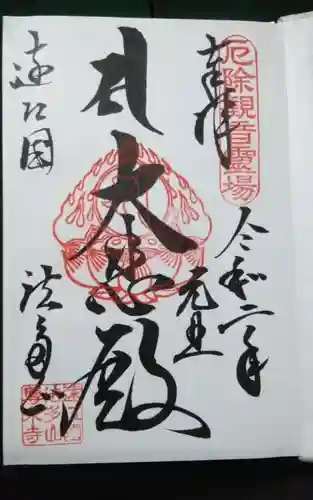 奉拝
厄除觀音靈場
令和二年
元旦
大悲殿
遠江国
法多山